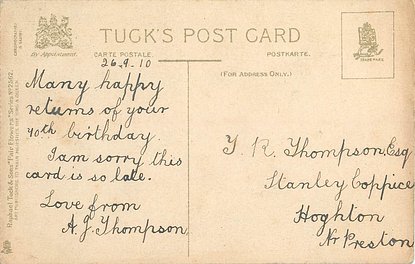 TUCK'S POST CARD
By Appointment.
CARTE POSTALE.
POSTKARTE.
26.9.10
(FOR ADDRESS ONLY.)
TRADE MARK
Many happy
returns of your
40th birthday.
I am sorry this
card is so late.
Love from
A. J. Thompson
T. R. Thompson, Esq
Stanley Coppice
Hoghton
Nr Preston
Raphael Tuck & Sons